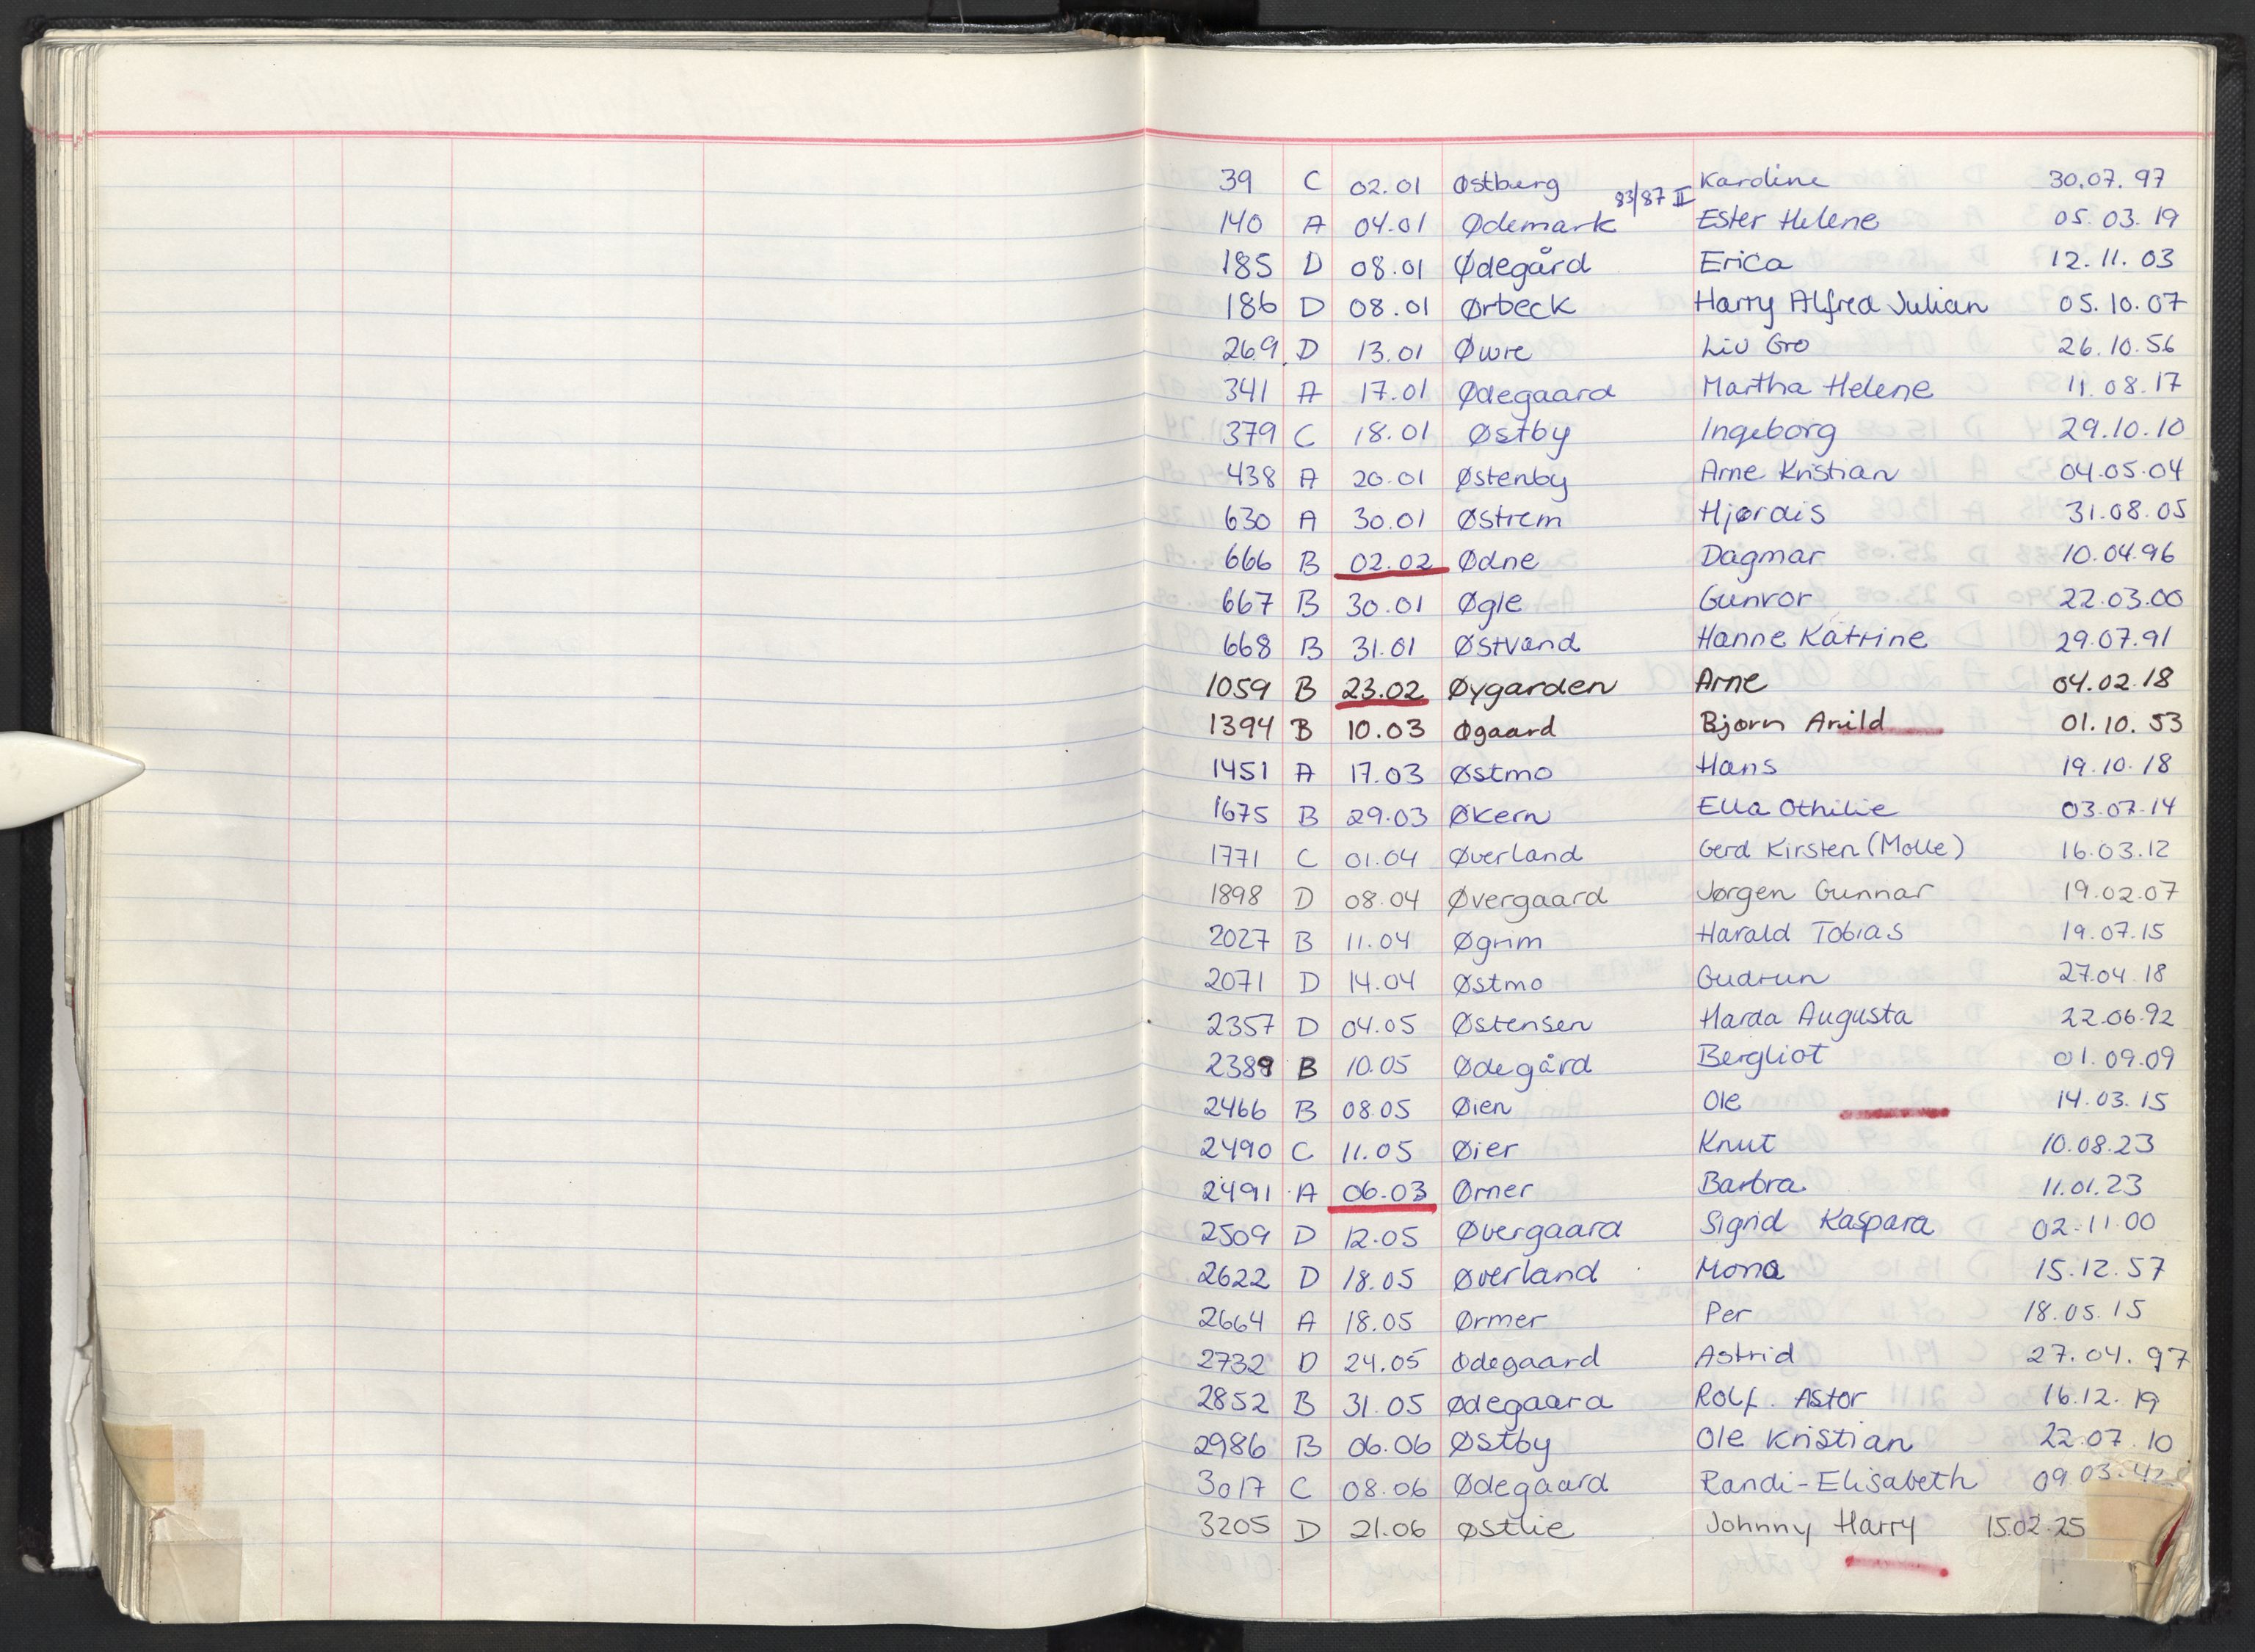 39 C 02.01 Østberg Karoline 30.07.97
140 A 04.01 Ødemark 83/87 II Ester Helene 05.03.19
185 D 08.01 Ødegård Erica 12.11.03
186 D 08.01 Ørbeck Harry Alfred Julian 05.10.07
269 D 13.01 Øwre Liv Gro 26.10.56
341 A 17.01 Ødegaard Martha Helene 11.08.17
379 C 18.01 Østby Ingeborg 29.10.10
438 A 20.01 Østenby Arne Kristian 04.05.04
630 A 30.01 Østrem Hjørdis 31.08.05
666 B 02.02 Ødne Dagmar 10.04.96
667 B 30.01 Øgle Gunvor 22.03.00
668 B 31.01 Østvand Hanne Katrine 29.07.91
1059 B 23.02 Øygarden Arne 04.02.18
1394 B 10.03 Øgaard Bjørn Arild 01.10.53
1451 A 17.03 Østmo Hans 19.10.18
1675 B 29.03 Økern Ella Othilie 03.07.14
1771 C 01.04 Øverland Gerd Kirsten (Molle) 16.03.12
1898 D 08.04 Øvergaard Jørgen Gunnar 19.02.07
2027 B 11.04 Øgrim Harald Tobias 19.07.15
2071 D 14.04 Østmo Gudrun 27.04.18
2357 D 04.05 Østensen Harda Augusta 22.06.92
2389 B 10.05 Ødegård Bergliot 01.09.09
2466 B 08.05 Øien Ole 14.03.15
2490 C 11.05 Øier Knut 10.08.23
2491 A 06.03 Ørner Barbra 11.01.23
2509 D 12.05 Øvergaard Sigrid Kaspara 02.11.00
2622 D 18.05 Øverland Mona 15.12.57
2664 A 18.05 Ørmer Per 18.05.15
2732 D 24.05 Ødegaard Astrid 27.04.97
2852 B 31.05 Ødegaard Rolf Astor 16.12.19
2986 B 06.06 Østby Ole Kristian 22.07.10
3017 C 08.06 Ødegaard Randi-Elisabeth 09.03.42
3205 D 21.06 Østlie Johnny Harry 15.02.25